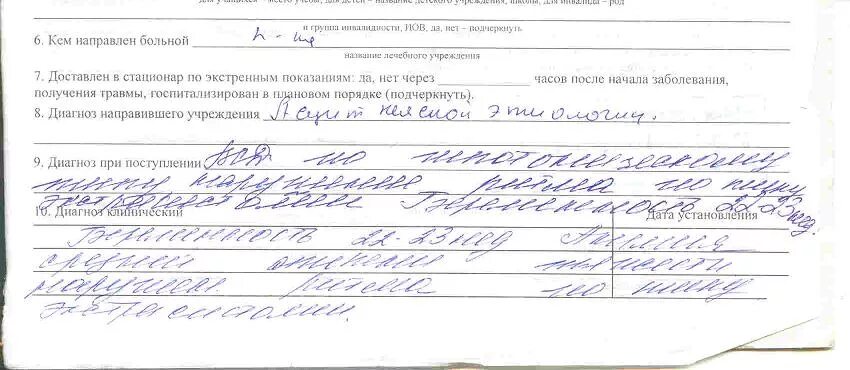 для учащихся – место учебы; для детей – название детского учреждения, школы; для инвалида – род
и группа инвалидности, ИОВ, да, нет – подчеркнуть
6. Кем направлен больной
название лечебного учреждения
7. Доставлен в стационар по экстренным показаниям: да, нет через ____________ часов после начала заболевания,
получения травмы, госпитализирован в плановом порядке (подчеркнуть).
8. Диагноз направившего учреждения Асцит неясной этиологии.
9. Диагноз при поступлении ВСД по гипотоническому
типу нарушение ритма по типу
экстрасистолии Беременность 22-23 нед.
10. Диагноз клинический Дата установления
Беременность 22-23 нед Анемия
средней степени тяжести
наруш. ритма по типу
экстрасистолии.